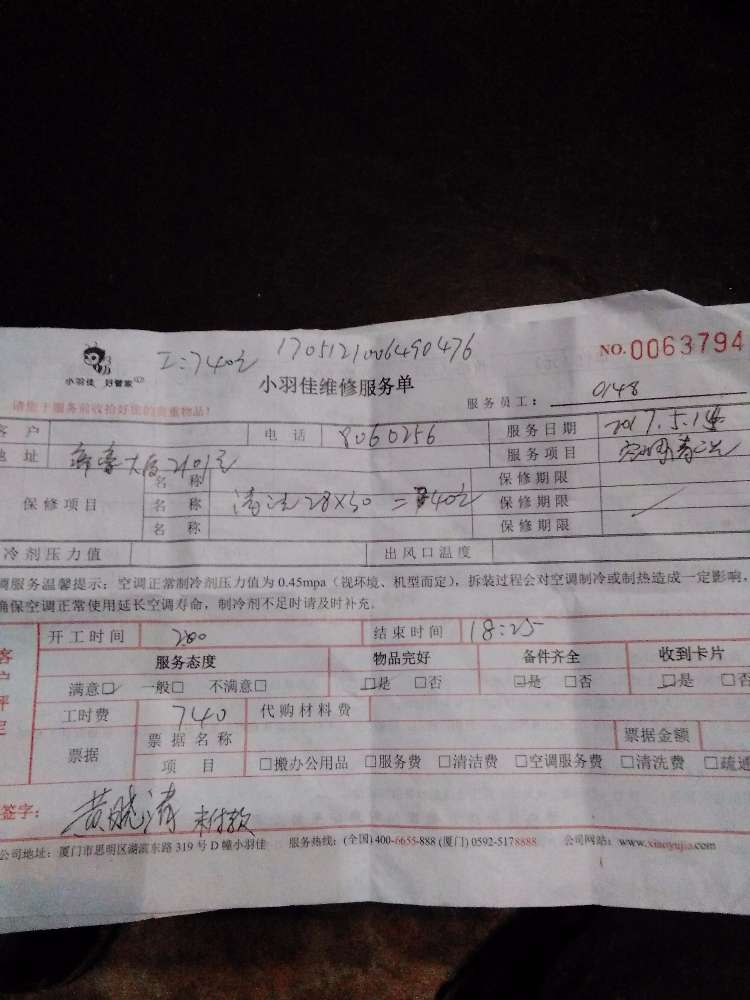 工:740元 1705121006490476 NO.0063794
小羽佳 好管家 小羽佳维修服务单 服务员工: 0148
请您于服务前收拾好您的贵重物品!
客户 电话 8060256 服务日期 2017.5.1
地址 大厦2101室 服务项目 空调清洗
保修项目 名称 保修期限
名称 清洗28X30=840元 保修期限
名称 保修期限
冷剂压力值 出风口温度
调服务温馨提示:空调正常制冷剂压力值为 0.45mpa(视环境、机型而定),拆装过程会对空调制冷或制热造成一定影响,
确保空调正常使用延长空调寿命,制冷剂不足时请及时补充.
客户评定
开工时间 2:00 结束时间 18:25
服务态度 物品完好 备件齐全 收到卡片
满意□ 一般□ 不满意□ □是 □否 □是 □否 □是 □否
工时费 740 代购材料费
票据 票据名称 票据金额
项目 □搬办公用品 □服务费 □清洁费 □空调服务费 □清洗费 □疏通
签字: 未付款
公司地址:厦门市思明区湖滨东路 319 号 D 幢小羽佳 服务热线:(全国)400-6655-888 (厦门) 0592-5178888 公司网站:www.xiaoyujia.com